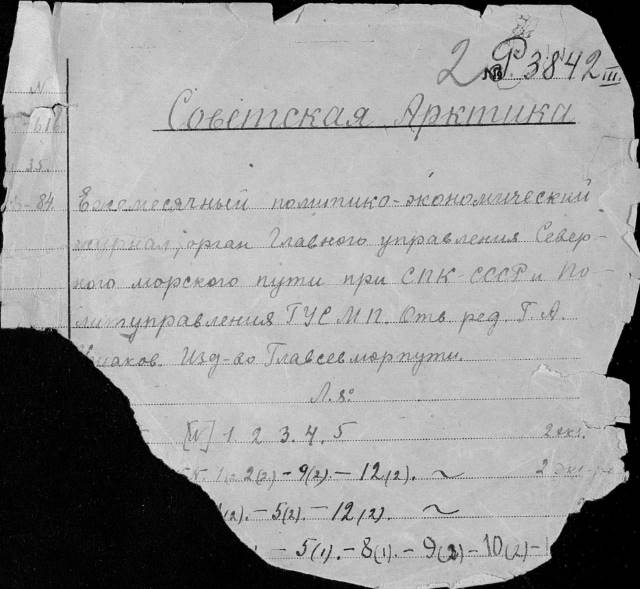 2 № Р. 3842 III.
Советская Арктика
35.
84. Ежемесячный политико-экономический
журнал, орган Главного управления Север-
ного морского пути при СНК СССР и По-
литуправления ГУСМП. Отв. ред. Г. А.
Изд-во Главсевморпути.
Л. 8°
[IV] 1. 2. 3. 4. 5 2 экз.
2(2) – 9(2). – 12(2). ~ 2 экз.
(2). – 5(2). – 12(2). ~
– 5(1). – 8(1). – 9(2) – 10(2) –